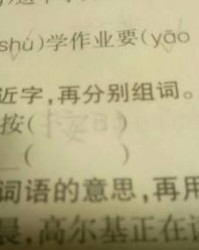 shù)学作业要(yāo
近字,再分别组词。
按(按时)
(    )
词语的意思,再用
晨,高尔基正在